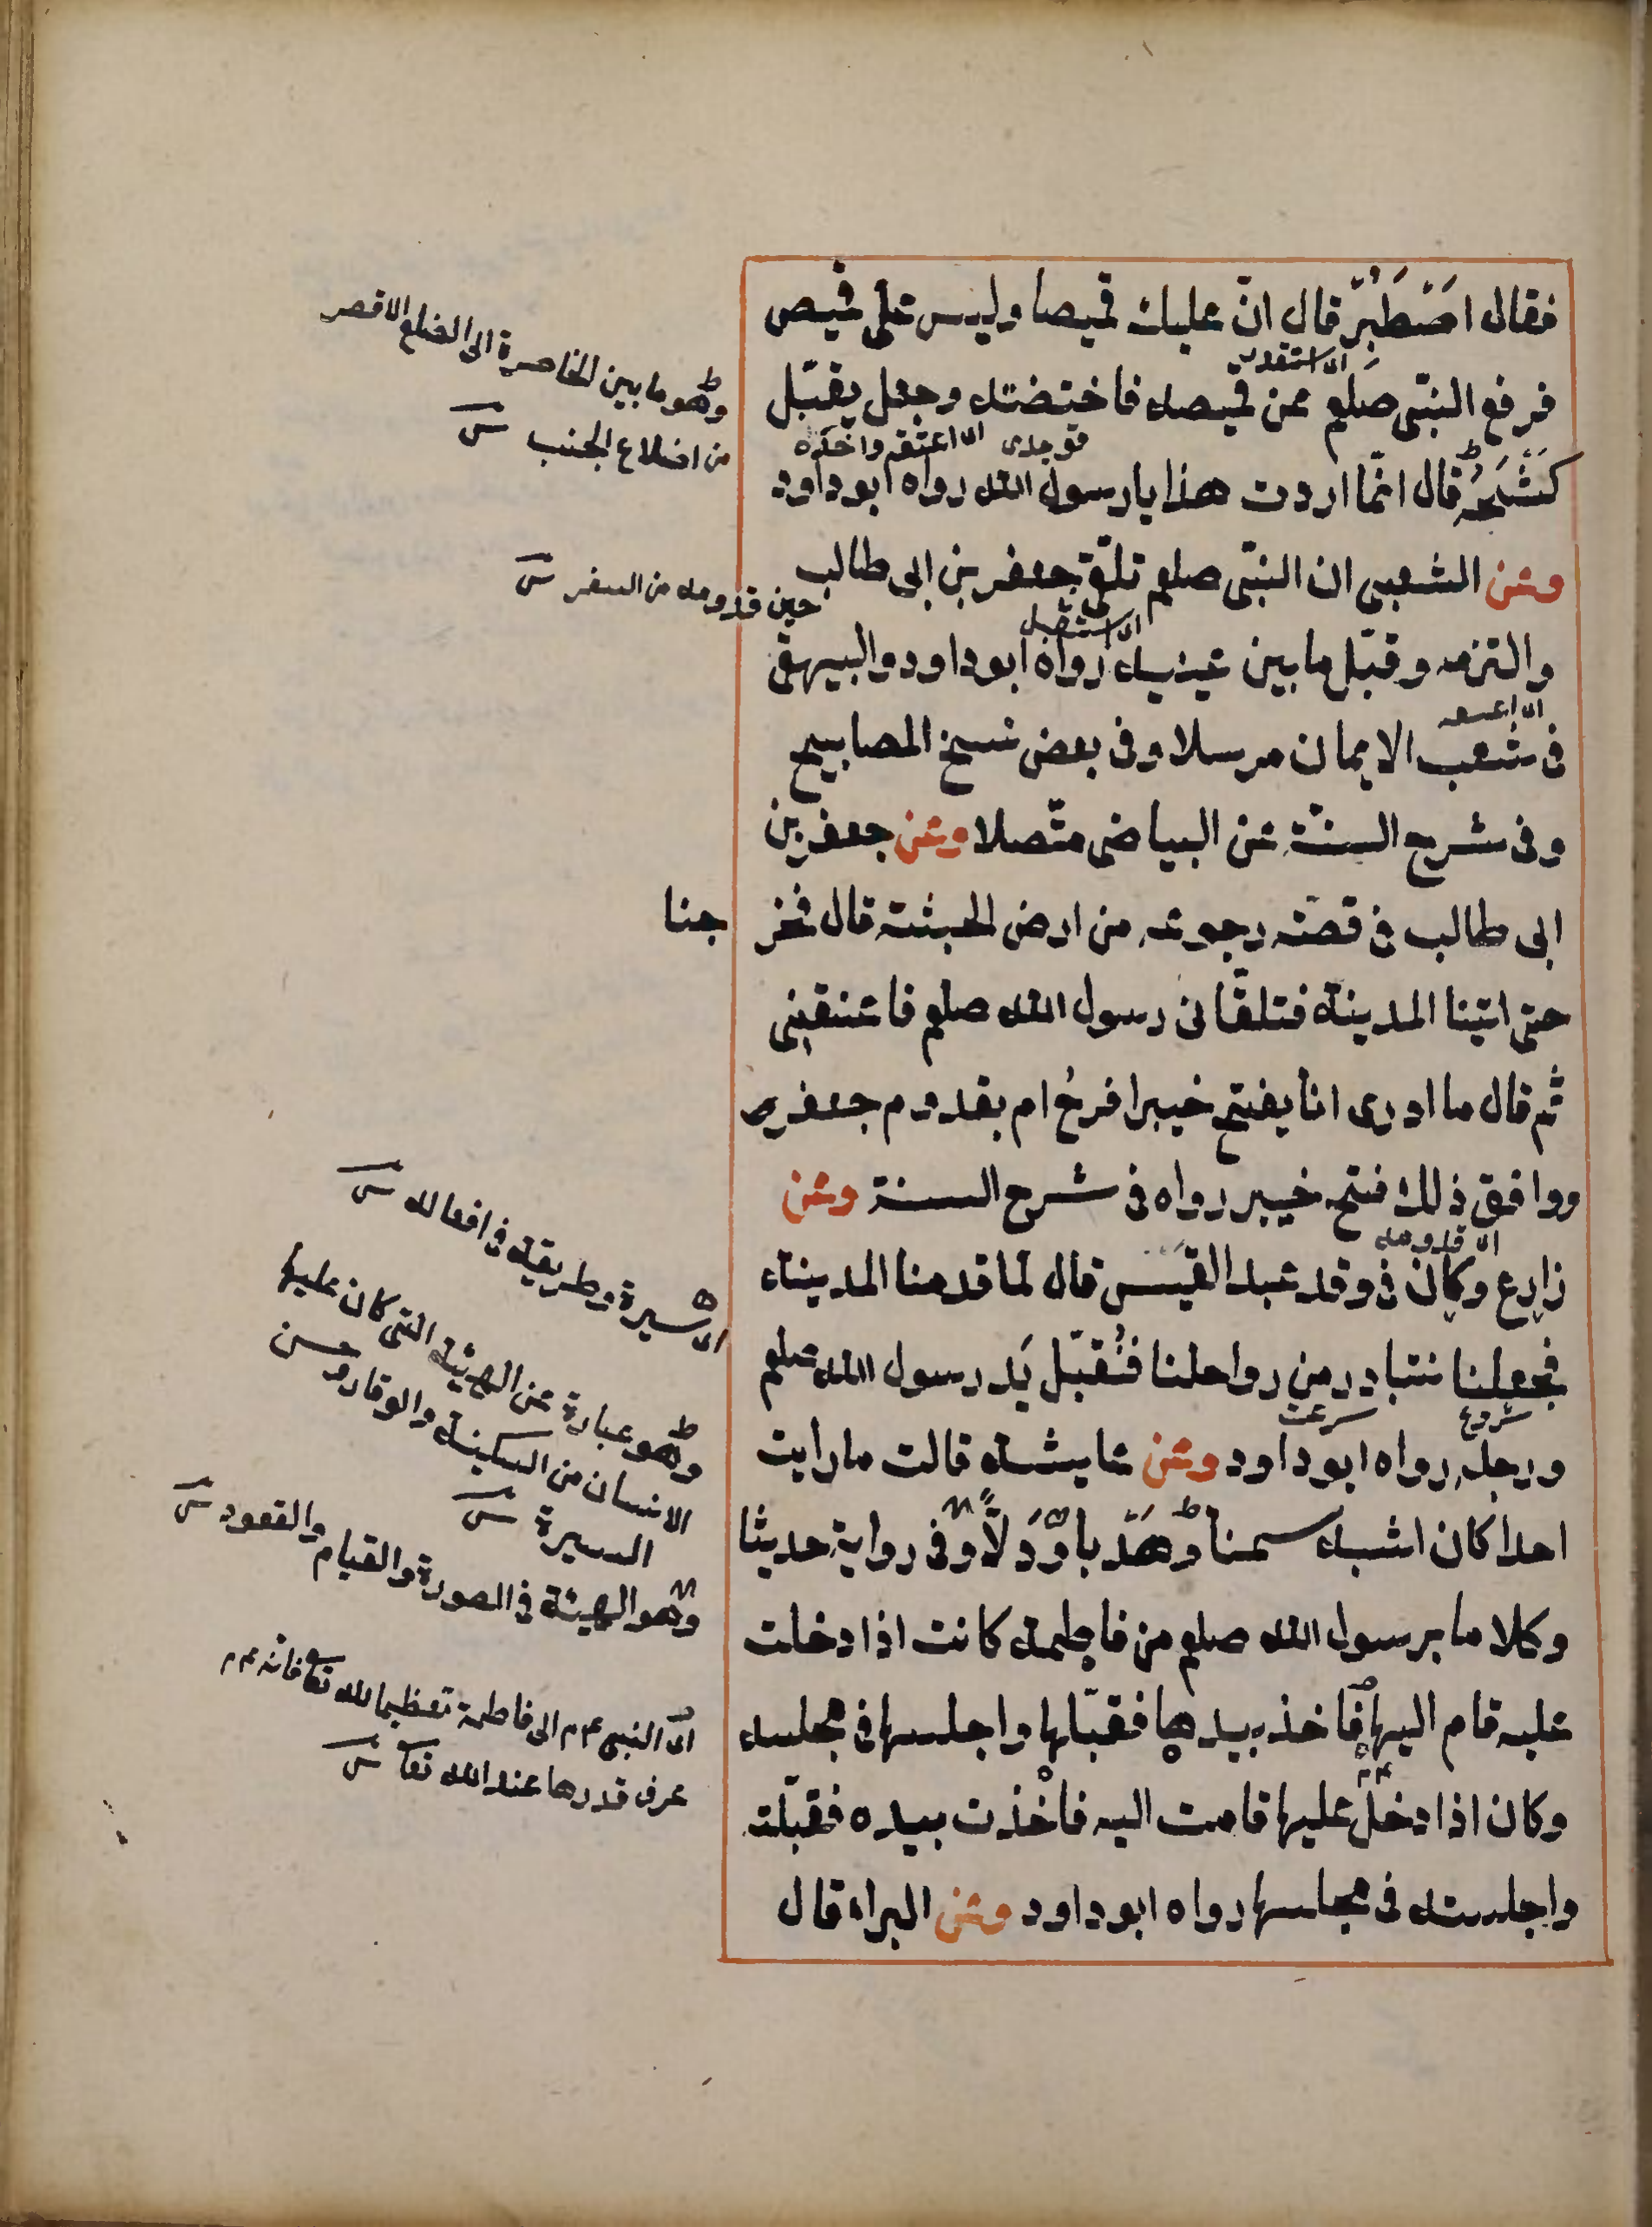 فقال اصْطَبِرْ قال انّ عليك قميصا وليس علىّ قميص
فرفع النبىّ صلعم عن قميصه فاختضنته وجعل يقبّل
كَشْحَهُ قال انّما اردت هذا يا رسول الله رواه ابو داود
وعن الشعبى ان النبىّ صلعم تلقّى جعفر بن ابى طالب
والتزمه وقبّل ما بين عينيه رواه ابو داود والبيهقى
فى شعب الايمان مرسلا وفى بعض نسخ المصابيح
وفى شرح السنّة عن البياضى متّصلا وعن جعفر بن
ابى طالب فى قصّته رجوعه من ارض الحبشة قال فخر جنا
حتى اتينا المدينة فتلقّانى رسول الله صلعم فاعتنقنى
ثم قال ما ادرى انا بفتح خيبر افرحُ ام بقدوم جعفر
ووافق ذلك فتح خيبر رواه فى شرح السنة وعن
زارع وكان فى وفد عبد القيس قال لمّا قدمنا المدينة
فجعلنا نتبادر من رواحلنا فنُقبّل يَد رسول الله صلعم
ورجله رواه ابو داود وعن عايشة قالت ما رايت
احدا كان اشبه سمتا وهَدْيا ودَلًّا وفى رواية حديثا
وكلاما برسول الله صلعم من فاطمة كانت اذا دخلت
عليه قام اليها فاخذ بيدها فقبّلها واجلسها فى مجلسه
وكان اذا دخل عليها قامت اليه فاخذت بيده فقبّلته
واجلسته فى مجلسها رواه ابو داود وعن البراء قال
وهو ما بين الخاصرة الى الضلع الاقصر
من اضلاع الجنب
حين قدومه من السفر
اى سيرة وطريقة فى افعاله
وهو عبارة عن الهيئة التى كان عليها
الانسان من السكينة والوقار وحسن
السيرة
وهو الهيئة فى الصورة والقيام والقعود
اى النبى عم الى فاطمة تعظيما لله تعا فانه عم
عرف قدرها عند الله تعا
اى استقبل
اى قدومه
شروع
سرعت